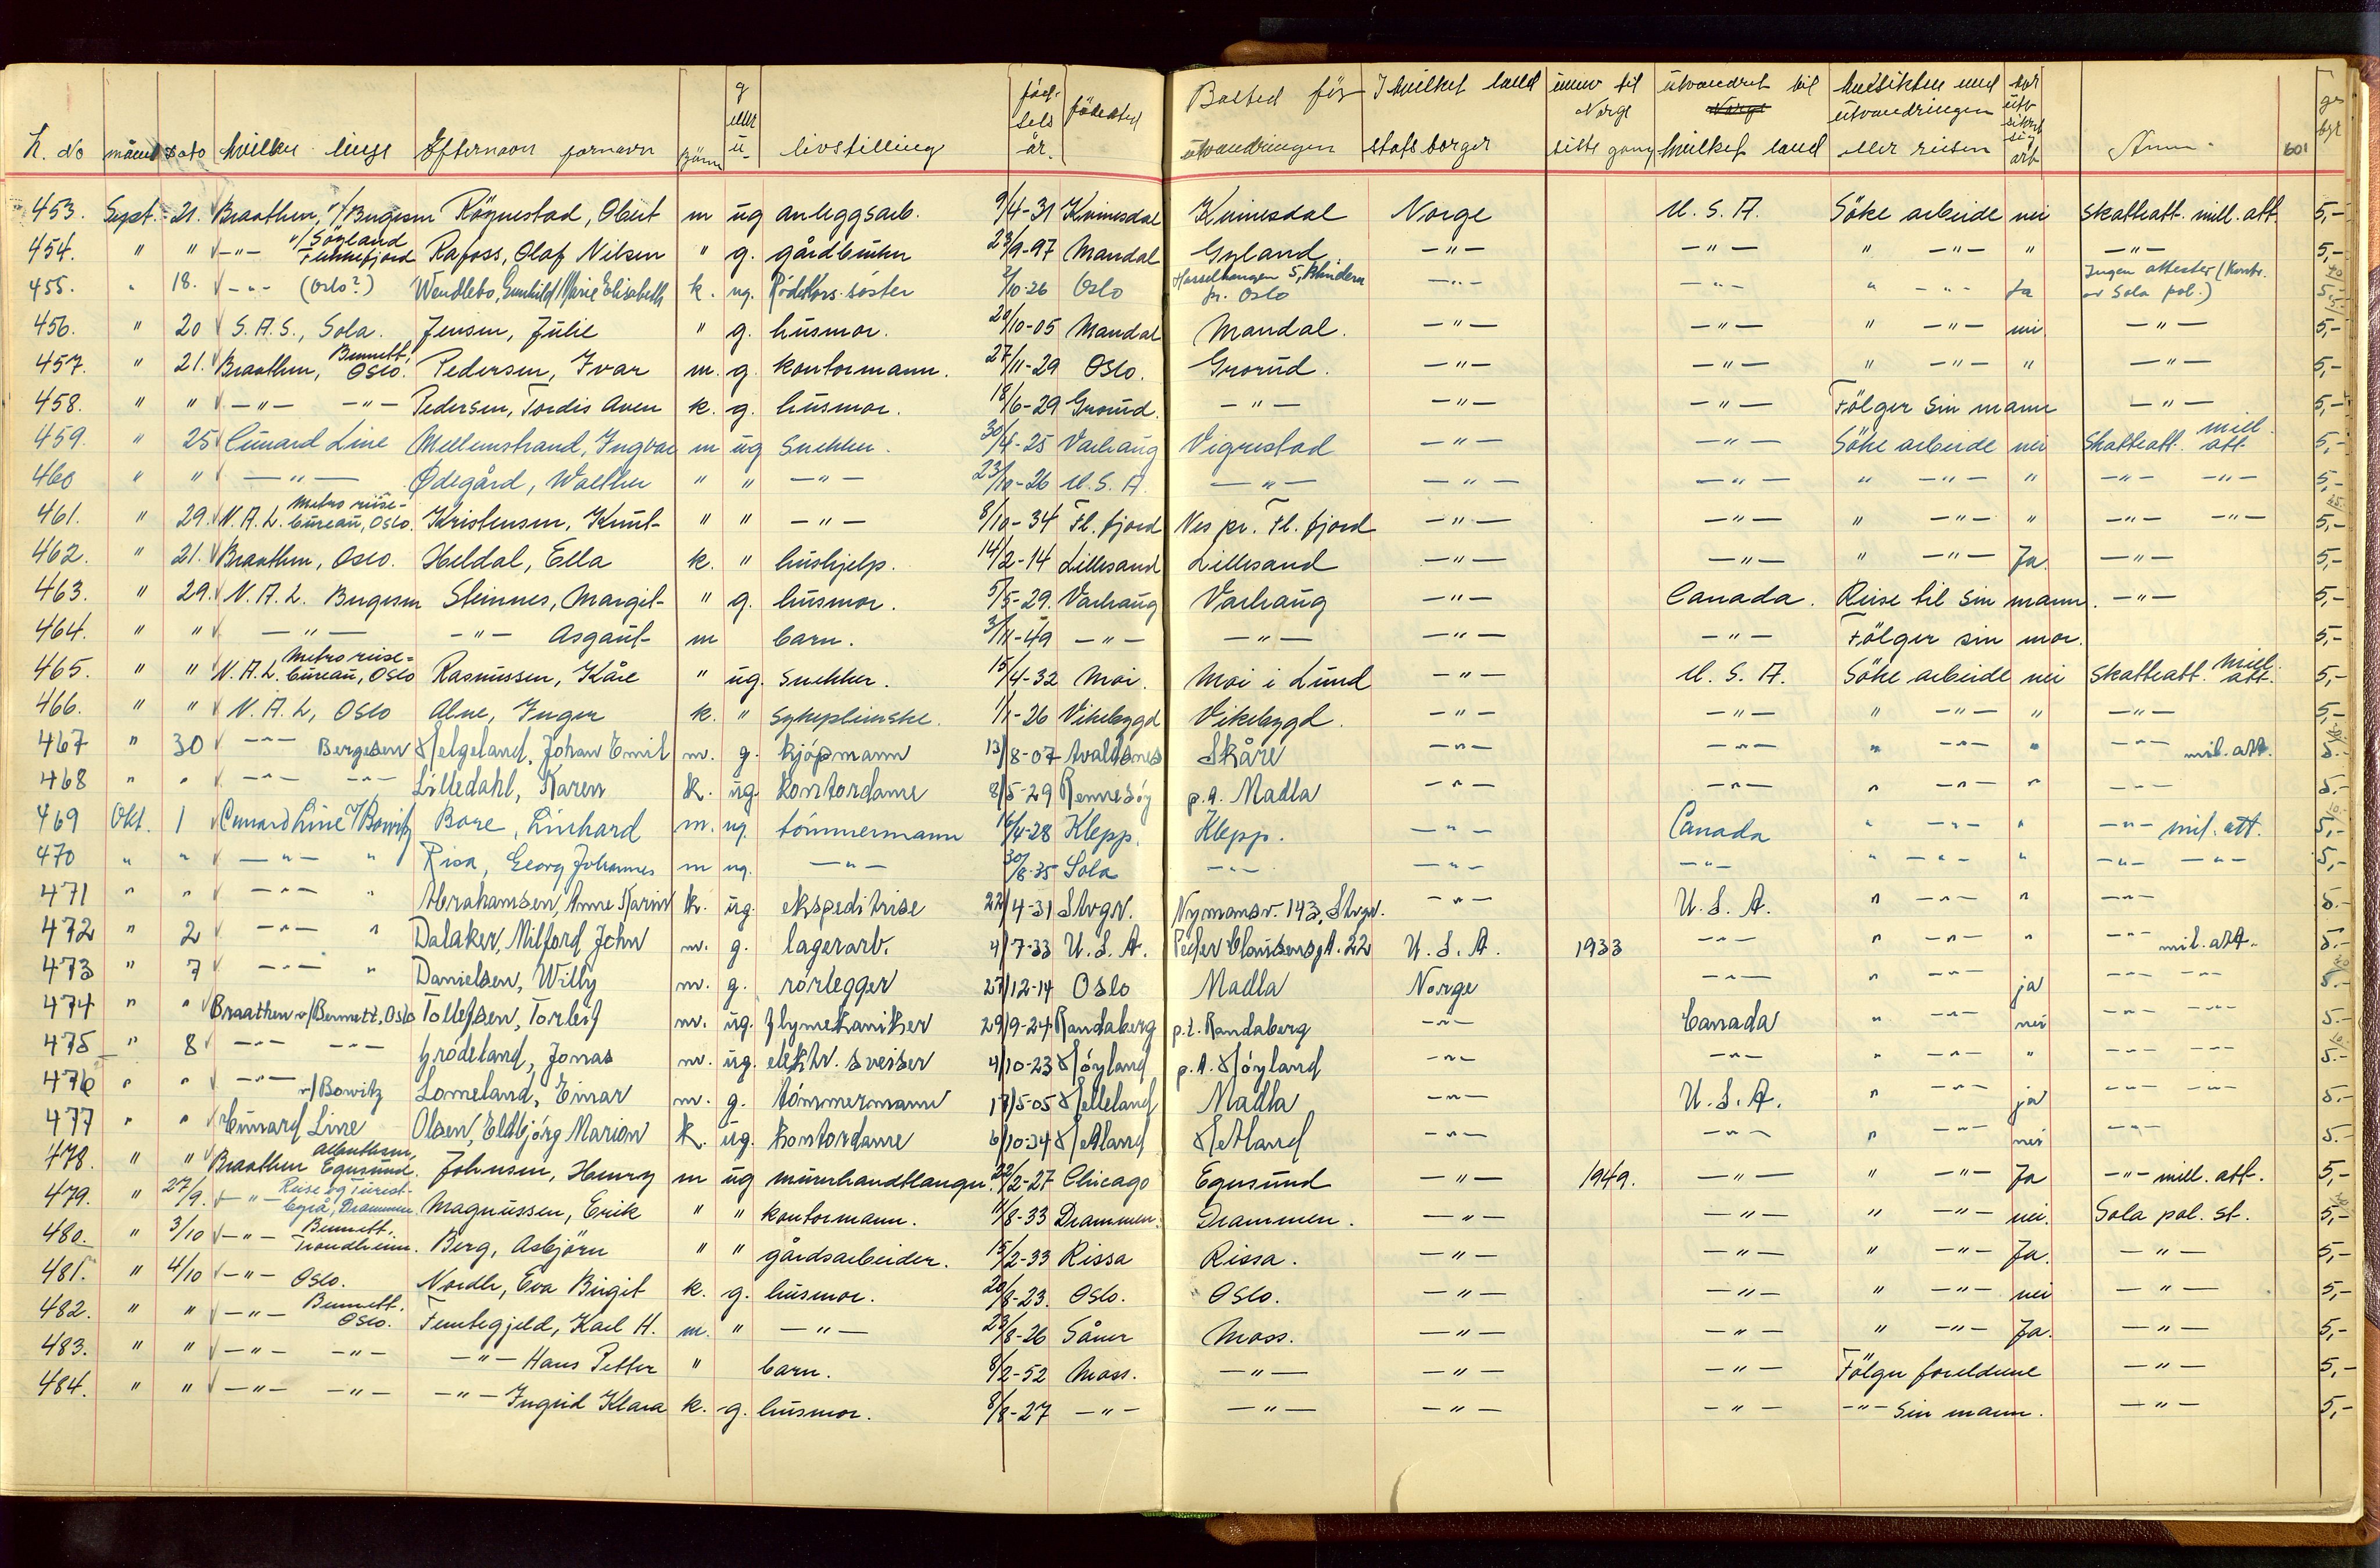 L. No månd dato hvilken linje Efternavn fornavn kjönn g eller u. livsstilling föd-sels år. födested Bosted för utvandringen I hvilket land statsborger innv til Norge siste gang utvandret til Norge hvilket land hensikten med utvandringen eller reisen har utv sikret sig arb Anm. 601 gebyr
453. Sept. 21. Braathen, v/Bugesen Rögnestad, Obert m ug anleggsarb. 9/4-31 Kvinesdal Kvinesdal Norge U.S.A. Söke arbeide nei skatteatt. mill. att. 5,-
454. " " -"- v/Söyland Flekkefjord Rafoss, Olaf Nilsen " g. gårdbruker 23/9-97 Mandal Gyland. -"- -"- " -"- " -"- 5,-
455. " 18. -"- (Oslo?) Wendlebo, Gunhild Marie Elisabeth k. ug. Röde Kors söster 2/10-26 Oslo Hasselhaugen 5, Blindern pr. Oslo -"- -"- " -"- Ja Ingen attester (Kontr. av Sola pol.) 5,-
456. " 20 S.A.S., Sola. Jensen, Julie " g. husmor. 20/10-05 Mandal Mandal. -"- -"- " -"- nei -"- 5,-
457. " 21. Braathen, Bennett, Oslo. Pedersen, Ivar m. g. kontormann. 27/11-29 Oslo. Grorud. -"- -"- " -"- " -"- 5,-
458. " " -"- -"- Pedersen, Tordis Aven k. g. husmor. 18/6-29 Grorud. -"- -"- -"- Fölger sin mann -"- 5,-
459. " 25 Cunard Line Mellemstrand, Ingvar m ug Snekker. 30/4-25 Varhaug Vigrestad -"- -"- Söke arbeide nei Skatteatt. mill. att. 5,-
460 " " -"- Ødegård, Walther " " -"- 23/10-26 U.S.A. -"- -"- -"- " -"- " -"- -"- 5,-
461. " 29. N.A.L. Metro reise-bureau, Oslo. Kristensen, Knut " " -"- 8/10-34 Fl. fjord Nes pr. Fl. fjord -"- -"- " -"- " -"- -"- 5,-
462. " 21. Braathen, Oslo. Heldal, Ella k. " hushjelp. 14/2-14 Lillesand Lillesand -"- -"- " -"- Ja. -"- 5,-
463. " 29. N.A.L. Bugesen Steinnes, Margit " g. husmor. 5/5-29. Varhaug Varhaug -"- Canada. Reise til sin mann. -"- 5,-
464. " " -"- -"- Asgaut m barn. 3/11-49 -"- -"- -"- -"- Fölger sin mor. 5,-
465. " " N.A.L. Metro reise-bureau, Oslo Rasmussen, Kåre " ug. snekker. 15/4-32 Moi. Moi i Lund -"- U.S.A. Söke arbeide nei skatteatt. mill. att. 5,-
466. " " N.A.L, Oslo Alne, Inger k. " sykepleierske. 1/1-26 Vikebygd Vikebygd. -"- -"- " -"- " -"- 5,-
467 " 30 -"- Bergesen Helgeland, Johan Emil m. g. kjöpmann 13/8-07 Avaldsnes Skåre -"- -"- " -"- " -"- mil. att. 5.-
468 " " -"- -"- Lilledahl, Karen k. ug kontordame 8/5-29 Rennesöy p.t. Madla -"- -"- " -"- " -"- 5.-
469 Okt. 1 Cunard Line v/Bowitz Bore, Linhard m. ug. tömmermann 16/4-28 Klepp. Klepp. -"- Canada " -"- " -"- mil. att. 5,-
470 " " -"- " Risa, Georg Johannes m ug. -"- 30/8-35 Sola -"- -"- -"- " -"- " -"- -"- 5,-
471 " " -"- " Abrahamsen, Anne Karin k. ug. ekspeditrise 22/4-31 Stvgr. Nymansv. 143, Stvgr. -"- U.S.A. " -"- " -"- 5.-
472 " 2 -"- " Dalaker, Milford John m. g. lagerarb. 4/7-33 U.S.A. Peder Clausensgt. 22 U.S.A. 1933 -"- " -"- " -"- mil. att. 5.-
473 " 7 -"- " Danielsen, Willy m. g. rörlegger 27/12-14 Oslo Madla Norge -"- " -"- ja -"- -"- 5.-
474 " " Braathen v/Bennett, Oslo Tollefsen, Torleif m. ug. flymekaniker 29/9-24 Randaberg p.t. Randaberg -"- Canada " -"- nei -"- -"- 5.-
475 " 8 -"- -"- Grödeland, Jonas m. ug. elektr. sveiser 4/10-23 Höyland p.t. Höyland -"- -"- " -"- " -"- -"- 5.-
476 " " -"- v/Bowitz Lomeland, Einar m. g. tömmermann 17/5-05 Helleland Madla -"- U.S.A. " -"- ja -"- -"- 5.-
477 " " Cunard Line Olsen, Eldbjörg Marion k. ug. kontordame 6/10-34 Hetland Hetland -"- -"- " -"- nei -"- 5.-
478. " " Braathen Albertsen, Egersund. Johnsen, Henry m ug murerhandtlanger. 22/2-27 Chicago Egersund -"- 1949. -"- " -"- Ja -"- mill. att. 5,-
479. " 27/9. -"- Reise og Turist-byrå, Drammen. Magnussen, Erik " " kontormann. 11/8-33 Drammen. Drammen. -"- -"- " -"- nei. Sola pol. st. 5,-
480. " 3/10 -"- Bennett, Trondheim. Berg, Asbjörn " " gårdsarbeider. 15/2-33 Rissa Rissa. -"- -"- " -"- Ja. -"- 5,-
481. " 4/10 -"- Oslo. Nordli, Eva Birgit k. g. husmor. 20/8-23. Oslo. Oslo. -"- -"- " -"- nei -"- 5,-
482. " " -"- Bennett. Oslo. Femtegjeld, Karl H. m. " -"- 23/8-26 Såner Moss. -"- -"- " -"- Ja. -"- 5,-
483. " " -"- -"- -"- Hans Petter " barn. 8/2-52 Moss. -"- -"- -"- Fölger foreldrene -"- 5,-
484. " " -"- -"- -"- Ingrid Klara k. g. husmor. 8/8-27 -"- -"- -"- -"- -"- Sin mann. -"- 5,-